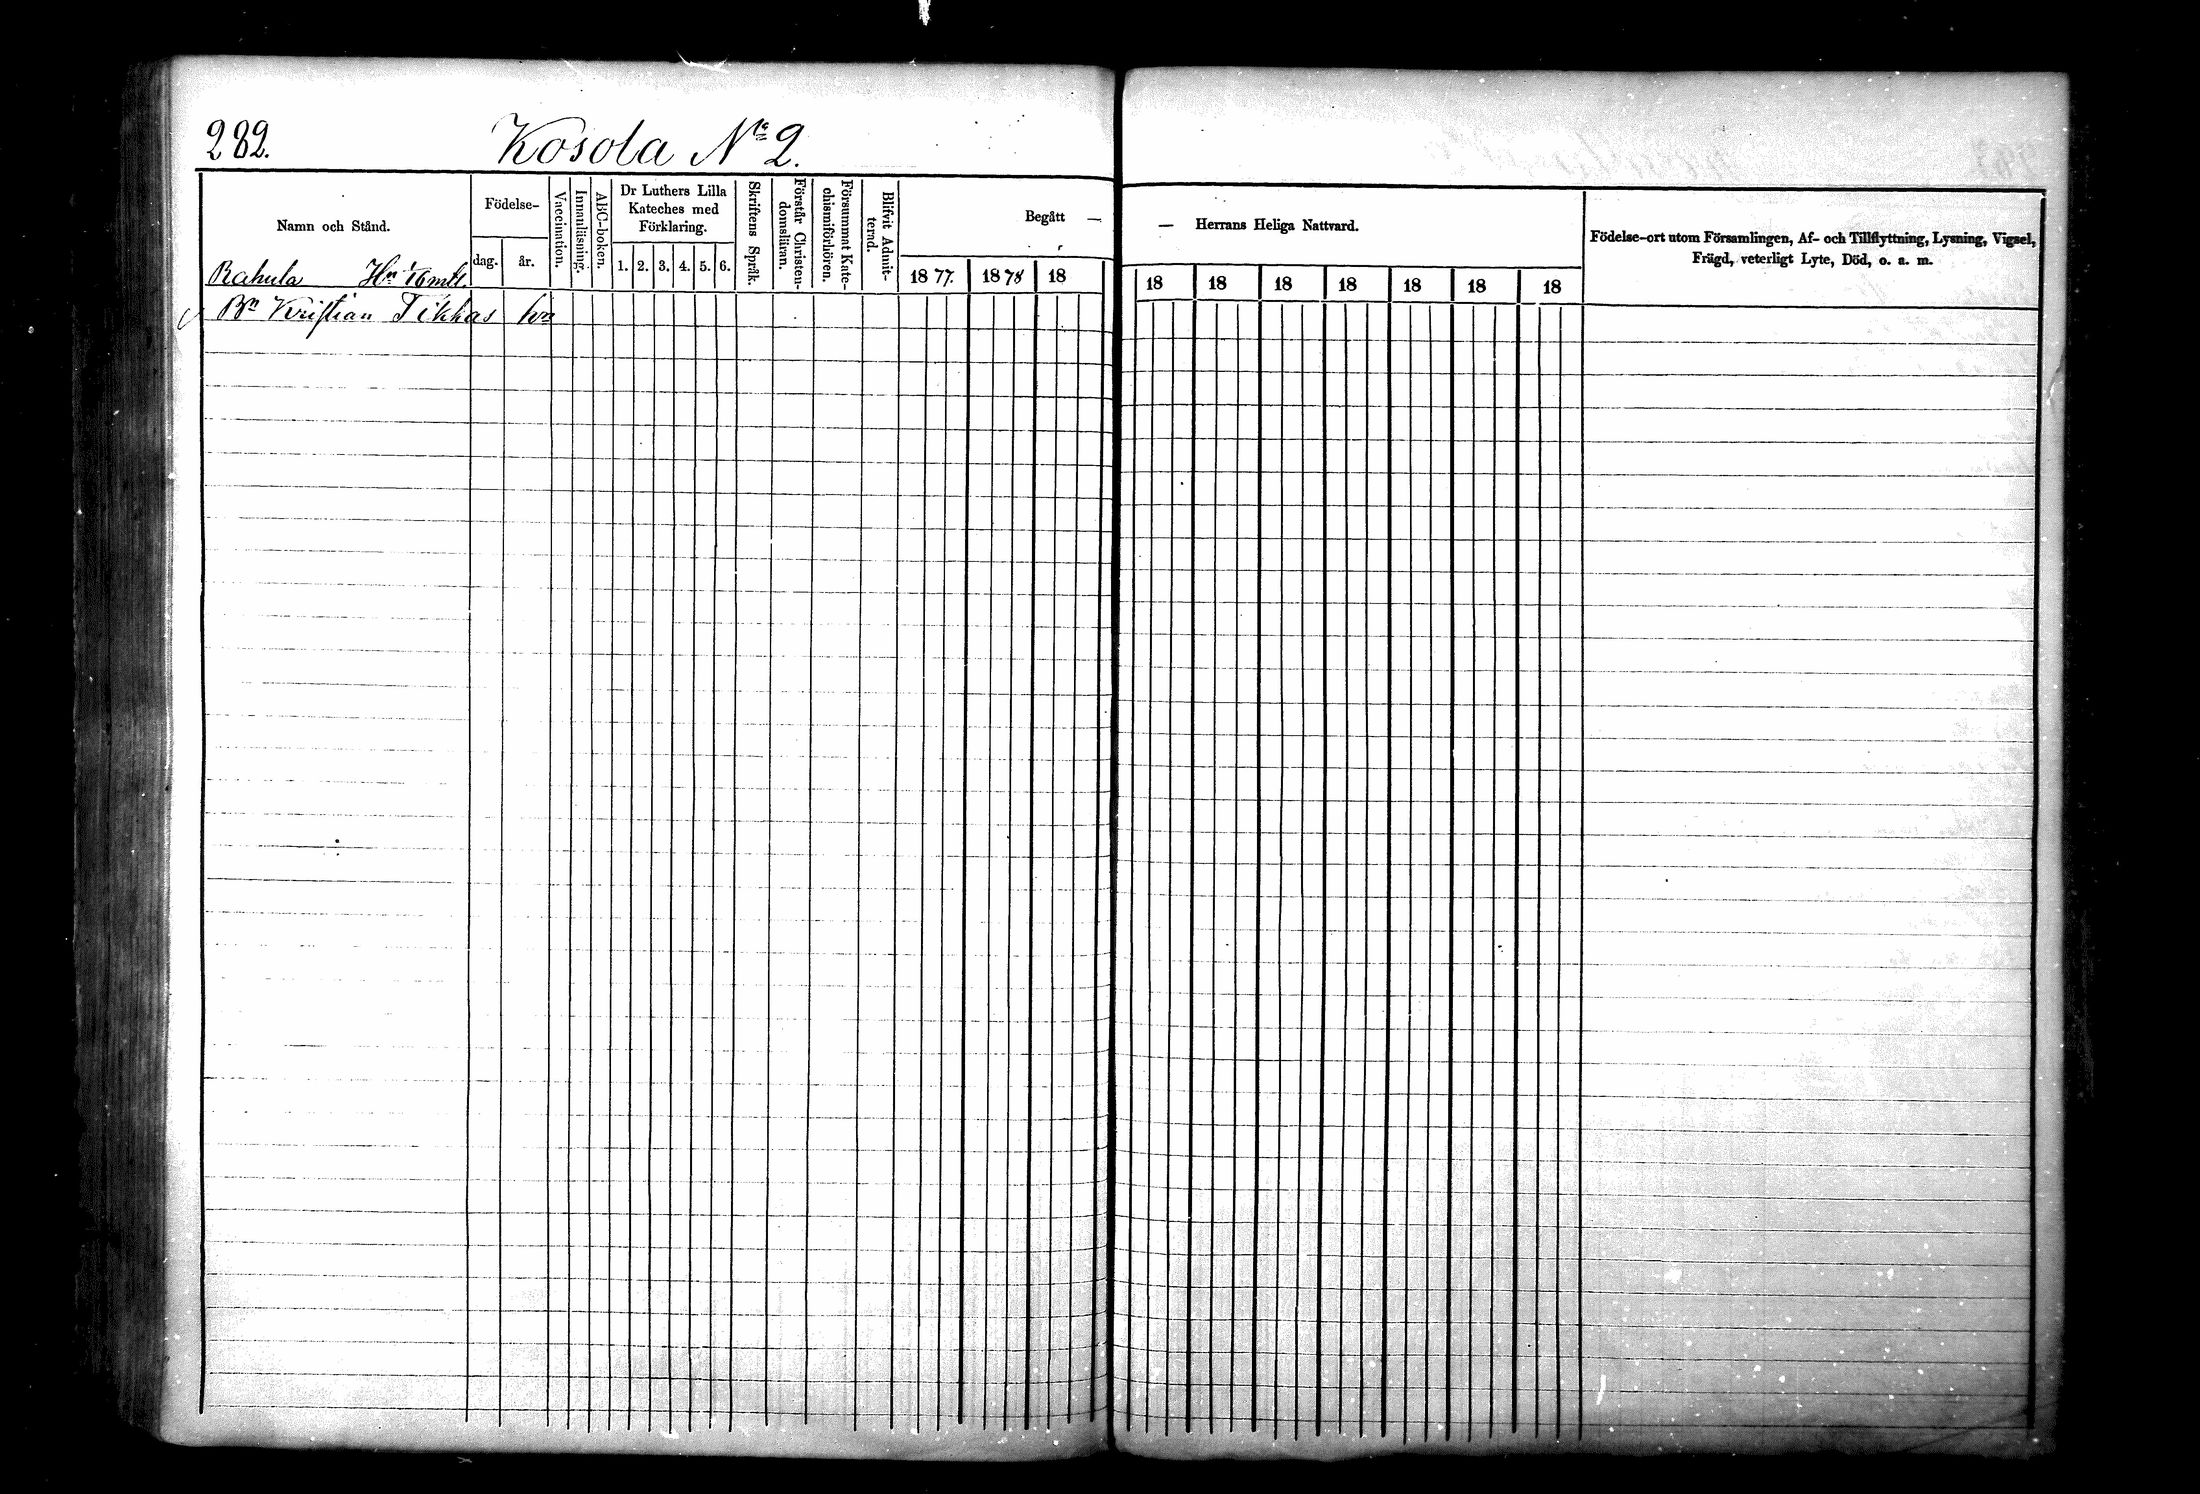 282.
Kosola No 2.
Namn och Stånd.
Födelse-
dag.
år.
Vaccination.
Innanläsning.
ABC-boken.
Dr Luthers Lilla
Kateches med
Förklaring.
1. 2. 3. 4. 5. 6.
Skriftens Språk.
Förstår Christen-
domsläran.
Försummat Kate-
chismiförhören.
Blifvit Admit-
terad.
Begått —
— Herrans Heliga Nattvard.
1877. 1878 18
18 18 18 18 18 18 18
Födelse-ort utom Församlingen, Af- och Tillflyttning, Lysning, Vigsel,
Frägd, veterligt Lyte, Död, o. a. m.
Rahula Hn 1/16 mtl.
Bn Kristian Tikkas